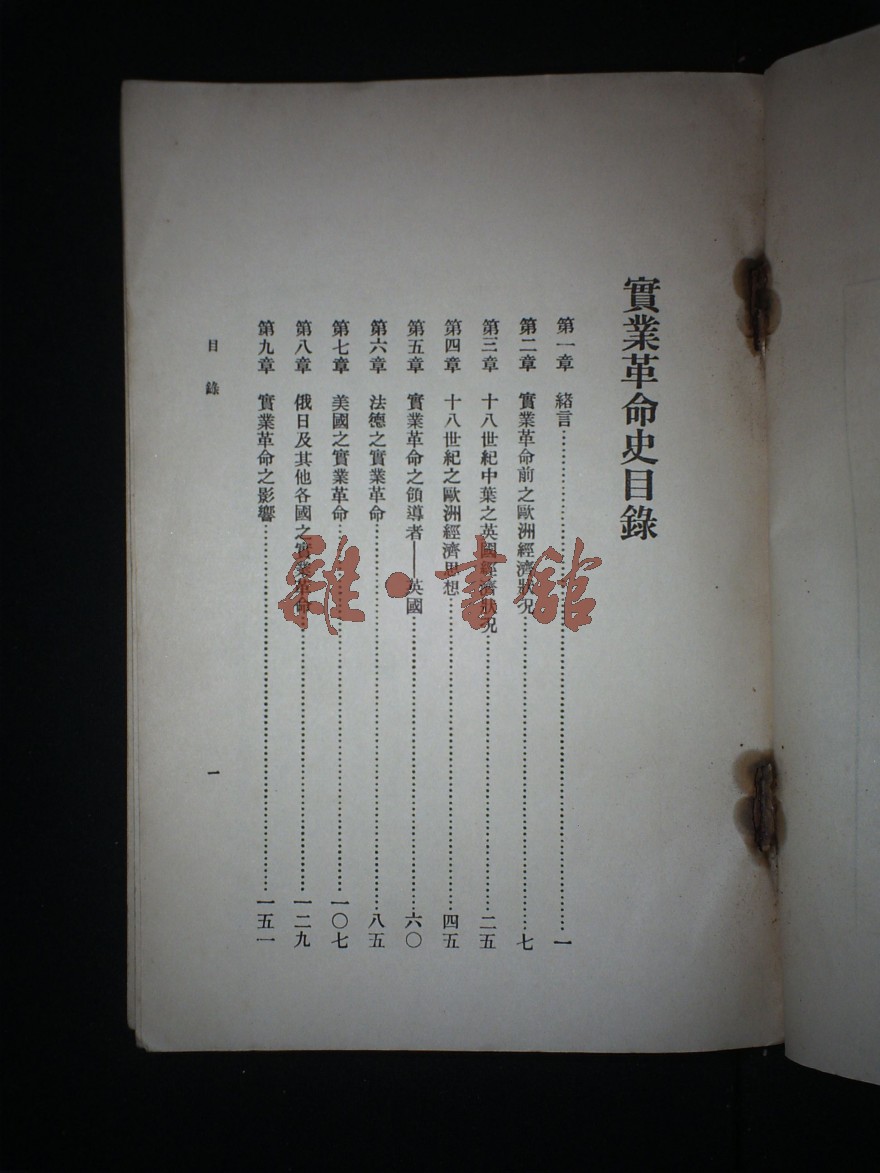 實業革命史目錄
第一章　緒言……一
第二章　實業革命前之歐洲經濟狀况……七
第三章　十八世紀中葉之英國經濟狀况……二五
第四章　十八世紀之歐洲經濟思想……四五
第五章　實業革命之領導者——英國……六〇
第六章　法德之實業革命……八五
第七章　美國之實業革命……一〇七
第八章　俄日及其他各國之實業革命……一二九
第九章　實業革命之影響……一五一
目錄
一
雜·書館